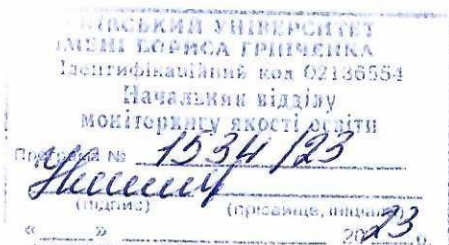 КИЇВСЬКИЙ УНІВЕРСИТЕТ
ІМЕНІ БОРИСА ГРІНЧЕНКА
Ідентифікаційний код 02136554
Начальник відділу
моніторингу якості освіти
Програма № 1534/23
(підпис) (прізвище, ініціали)
« » 2023 р.